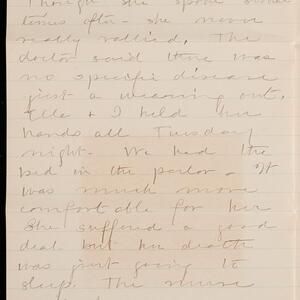 Though she spoke some
times after - she never
really rallied. The
doctor said there was
no specific disease
just a wearing out.
Ella & I held her
hands all Tuesday
night - We had the
bed in the parlor - it
was much more
comfortable for her
She suffered a good
deal but her death
was just going to
sleep. The nurse